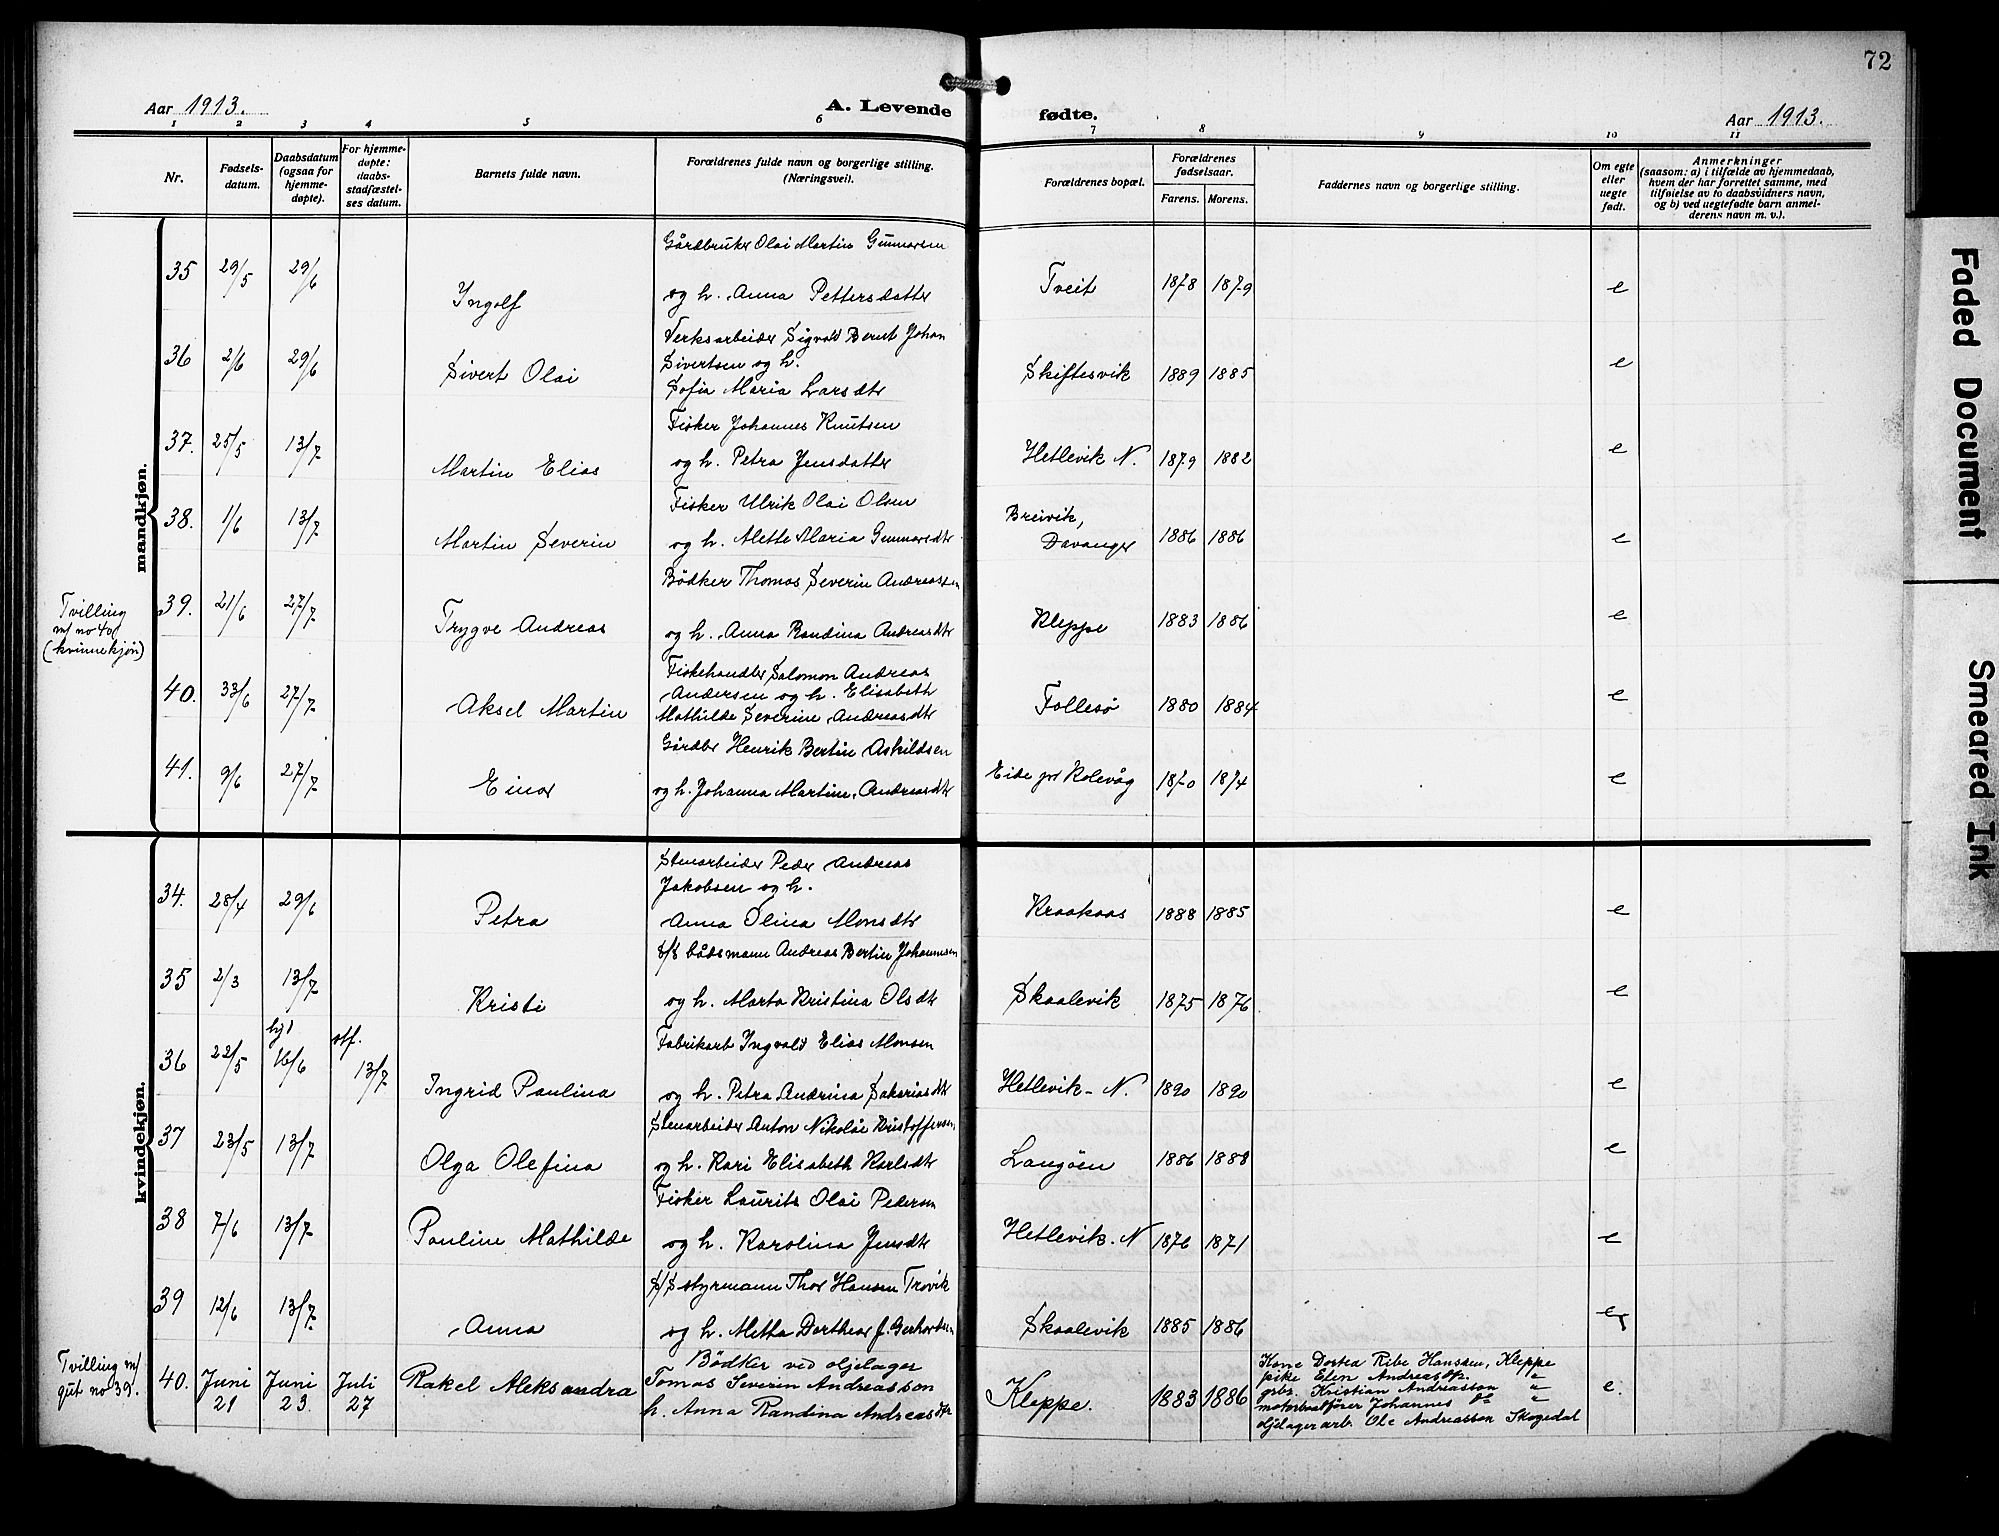 72
Aar 1913.
A. Levende fødte.
Aar 1913.
1 2 3 4 5 6 7 8 9 10 11
Nr.
Fødsels-
datum.
Daabsdatum
(ogsaa for
hjemme-
døpte).
For hjemme-
døpte:
daabs-
stadfæstel-
ses datum.
Barnets fulde navn.
Forældrenes fulde navn og borgerlige stilling.
(Næringsvei).
Forældrenes bopæl.
Forældrenes
fødselsaar.
Farens. Morens.
Faddernes navn og borgerlige stilling.
Om egte
eller
uegte
født.
Anmerkninger
(saasom: a) i tilfælde av hjemmedaab,
hvem der har forrettet samme, med
tilføielse av to daabsvidners navn,
og b) ved uegtefødte barn anmel-
derens navn m. v.).
mandkjøn.
Gårdbruker Olai Martin Gunnarsen
35 29/5 29/6 Ingolf og h. Anna Pettersdatter Tveit 1878 1879 e
Verksarbeider Sigvald Bernt Johan
36 2/6 29/6 Sivert Olai Sivertsen og h. Skiftesvik 1889 1885 e
Sofia Maria Larsdtr
Fisker Johannes Knutsen
37. 25/5 13/7 Martin Elias og h. Petra Jensdatter Hetlevik N. 1879 1882 e
Fisker Ulrik Olai Olsen
38. 1/6 13/7 Martin Severin og h. Mette Maria Gunnarsdtr Breivik, Davanger 1886 1886 e
Bødker Thomas Severin Andreassen
39. 21/6 27/7 Trygve Andreas og h. Anna Randina Andreasdtr Kleppe 1883 1886 e
Tvilling
m/ no 40
(kvinnekjøn)
Fiskehandler Salomon Andreas
40. 33/6 27/7 Aksel Martin Andersen og h. Elisabeth Follesø 1880 1884 e
Mathilde Severine Andreasdtr
Gårdbr Henrik Bertin Askildsen
41. 9/6 27/7 Einar og h. Johanna Martine Andreasdtr Eide pr Kolevåg 1870 1874 e
kvindekjøn.
Stenarbeider Peder Andreas
Jakobsen og h.
34. 28/4 29/6 Petra Anna Olina Monsdtr Kraakaas 1888 1885 e
S/S båtsmann Andreas Bertin Johannesen
35 2/3 13/7 Kristi og h. Marta Kristina Olsdtr Skaalevik 1875 1876 e
Fabrikarb Ingvald Elias Monsen
36 22/5 hjd 16/6 stf. 13/7 Ingrid Paulina og h. Petra Andrina Sakariasdtr Hetlevik - N. 1890 1890 e
Stenarbeider Anton Nikolai Kristoffersen
37 23/5 13/7 Olga Olefina og h. Kari Elisabeth Karlsdtr Langøen 1886 1888 e
Fisker Laurits Olai Pedersen
38 7/6 13/7 Pauline Mathilde og h. Karolina Jensdtr Hetlevik. N 1876 1871 e
S/S styrmann Thor Hansen Trovik
39 12/6 13/7 Anna og h. Metha Dorthea f. Gerhardsen Skaalevik 1885 1886 e
Tvilling m/
gut no 39.
Bødker ved oljelager
40. Juni 21 Juni 23. Juli 27 Rakel Aleksandra Tomas Severin Andreasson
h. Anna Randina Andreasdtr Kleppe. 1883 1886 e.
Kone Dortea Ribe Hansen, Kleppe
pike Elen Andreasdtr. "
grbr. Kristian Andreasson "
motorbaatfører Johannes do "
oljelagerarb. Ole Andreasson Skogedal
Faded Document
Smeared Ink